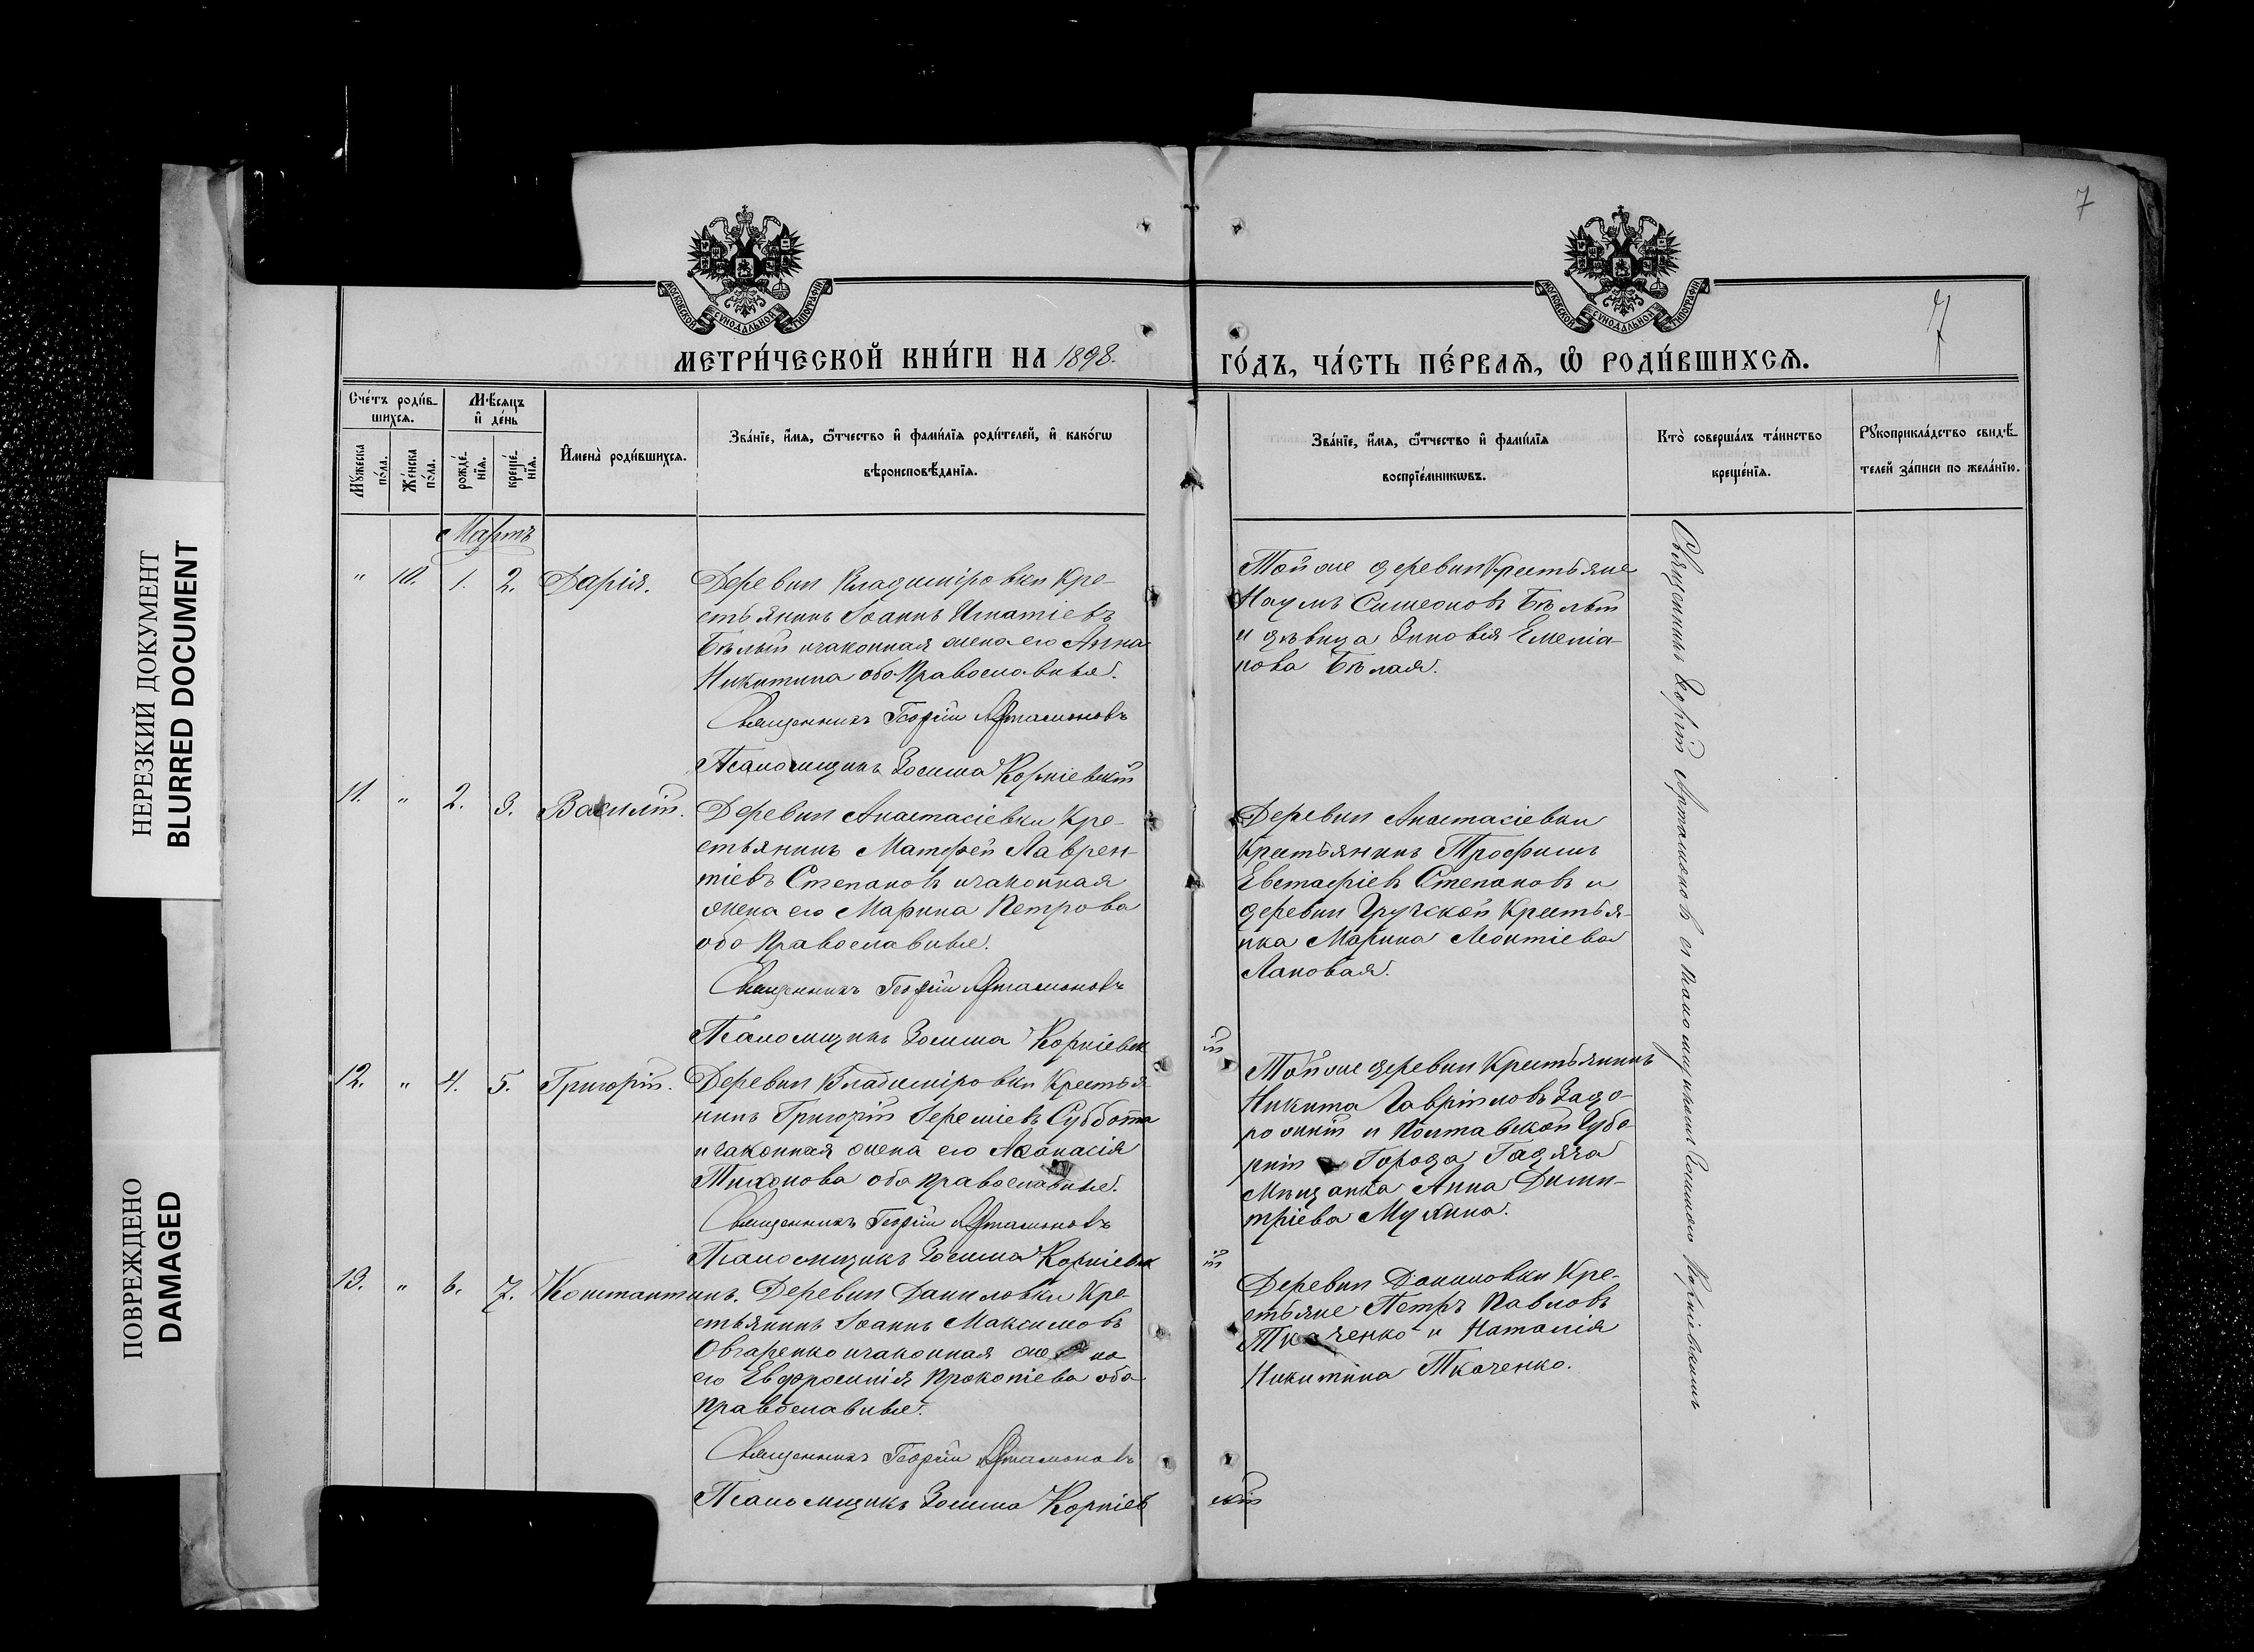 7
МОСКОВСКОЙ СѴНОДАЛЬНОЙ ТИПОГРАФІИ
МОСКОВСКОЙ СѴНОДАЛЬНОЙ ТИПОГРАФІИ
7
МЕТРИ́ЧЕСКОЙ КНИ́ГИ НА 1898.
ГО́ДЪ, ЧА́СТЬ ПЕ́РВАѦ, Ѽ РОДИ́ВШИХСѦ.
Сче́тъ роди́в-
шихсѧ.
Мꙋ́жеска
по́ла.
Же́нска
по́ла.
Мѣ́сѧцъ
и҆ де́нь
рожде́-
нїѧ.
креще́-
нїѧ.
И҆мена̀ роди́вшихсѧ.
Зва́нїе, и҆́мѧ, ѻ҆́тчество и҆ фами́лїѧ роди́телей, и҆ како́гѡ
вѣроисповѣ́данїѧ.
Зва́нїе, и҆́мѧ, ѻ҆́тчество и҆ фами́лїѧ
воспрїе́мникѡвъ.
Кто̀ соверша́лъ та́инство
креще́нїѧ.
Рꙋкоприкла́дство свидѣ́-
телей за́писи по жела́нїю.
Мартъ
" 10. 1. 2. Дарія.
Деревни Владиміровки Кре-
стьянинъ Іоаннъ Игнатіевъ
Бѣлый и законная жена его Анна
Никитина оба Православные.
Священникъ Георгій Артамоновъ
Псаломщикъ Зосима Корніевскій
Той же деревни Крестьяне
Наумъ Симеоновъ Бѣлый
и дѣвица Зиновія Емеліа-
нова Бѣлая.
11. " 2. 3. Василій.
Деревни Анастасіевки Кре-
стьянинъ Матфей Лаврен-
тіевъ Степановъ и законная
жена его Марина Петрова
оба Православные.
Священникъ Георгій Артамоновъ
Псаломщикъ Зосима Корніевск
ій
Деревни Анастасіевки
Крестьянинъ Трофимъ
Евстафіевъ Степановъ и
деревни Грузской Крестья-
нка Марина Леонтіева
Лановая.
12. " 4. 5. Григорій.
Деревни Владиміровки Крестья-
нинъ Григорій Іереміевъ Суббота
и законная жена его Афанасія
Тихонова оба православные.
Священникъ Георгій Артамоновъ
Псаломщикъ Зосима Корніевск
ій
Той же деревни Крестьянинъ
Никита Гавріиловъ Задо-
рожній и Полтавской Губе-
рніи Города Гадяча
Мѣщанка Анна Дими-
тріева Мухина.
13. " 6. 7. Константинъ.
Деревни Даниловки Кре-
стьянинъ Іоаннъ Максимовъ
Овчаренко и законная жена
его Евфросинія Прокопіева оба
Православные.
Священникъ Георгій Артамоновъ
Псаломщикъ Зосима Корніев
скій
Деревни Даниловки Кре-
стьяне Петръ Павловъ
Ткаченко и Наталія
Никитина Ткаченко.
Священникъ Георгій Артамоновъ съ псаломщикомъ Зосимою Корніевскимъ
НЕРЕЗКИЙ ДОКУМЕНТ
BLURRED DOCUMENT
ПОВРЕЖДЕНО
DAMAGED